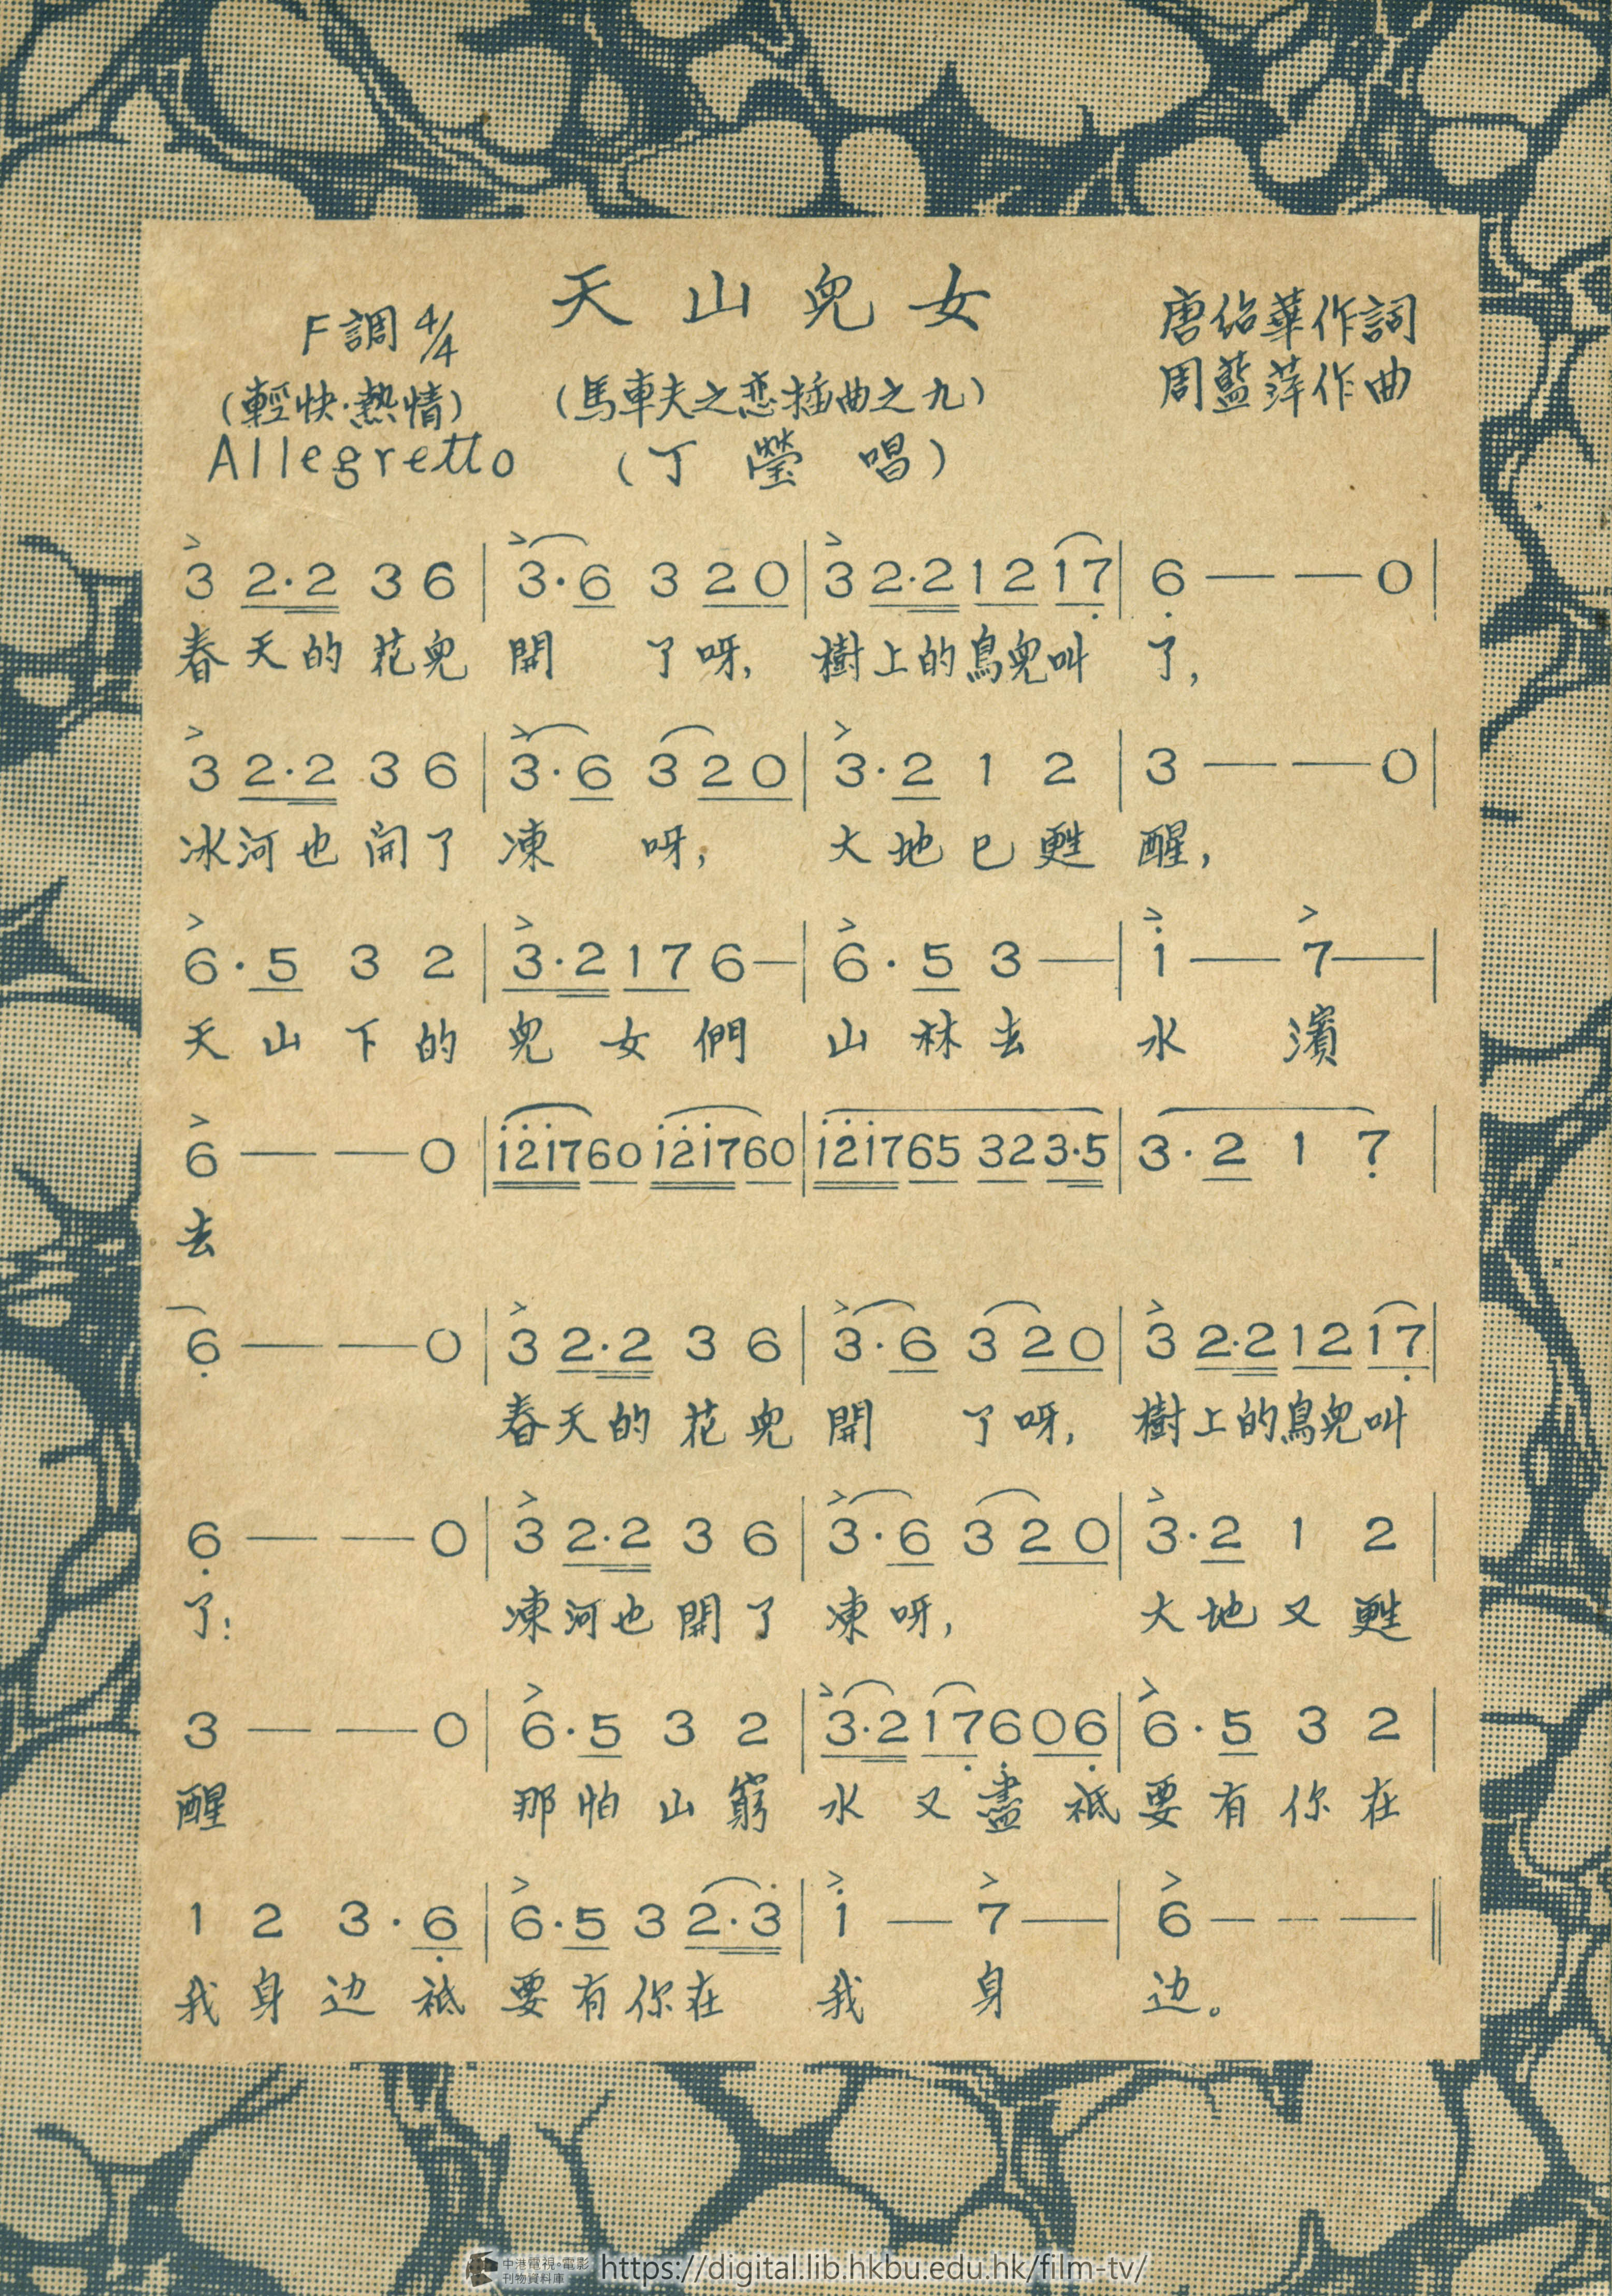 天山兒女
F調 4/4
唐紹華作詞
(輕快·熱情)
(馬車夫之恋插曲之九)
周藍萍作曲
Allegretto
(丁瑩唱)
3 2·2 3 6 | 3·6 3 2 0 | 3 2·2 1 2 1 7 | 6 — — 0 |
春天的花兒開了呀,樹上的鳥兒叫了,
3 2·2 3 6 | 3·6 3 2 0 | 3·2 1 2 | 3 — — 0 |
冰河也開了凍呀,大地已甦醒,
6·5 3 2 | 3·2 1 7 6 — | 6·5 3 — | i — 7 — |
天山下的兒女們山林去水濱
6 — — 0 | i 2̇ i 7 6 0 i 2̇ i 7 6 0 | i 2̇ i 7 6 5 3 2 3·5 | 3·2 1 7̣ |
去
6̣ — — 0 | 3 2·2 3 6 | 3·6 3 2 0 | 3 2·2 1 2 1 7̣ |
春天的花兒開了呀,樹上的鳥兒叫
6̣ — — 0 | 3 2·2 3 6 | 3·6 3 2 0 | 3·2 1 2 |
了:凍河也開了凍呀,大地又甦
3 — — 0 | 6·5 3 2 | 3·2 1 7̣ 6̣ 0 6̣ | 6·5 3 2 |
醒那怕山窮水又盡祗要有你在
1 2 3·6̣ | 6·5 3 2·3̇ | i — 7 — | 6 — — — ||
我身边祗要有你在我身边。
中港電視·電影
刊物資料庫
https://digital.lib.hkbu.edu.hk/film-tv/